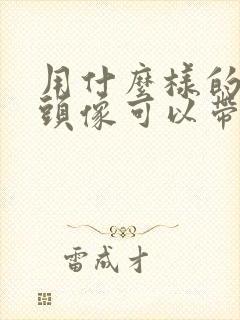 用什麼樣的
頭像可以帶
雷成才